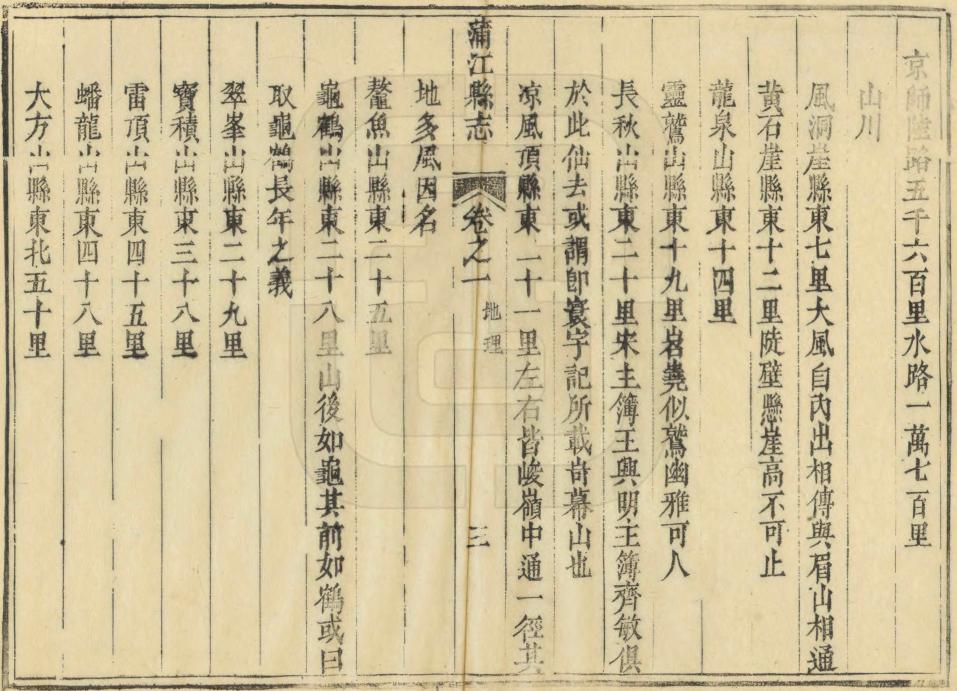 京師陸路五千六百里水路一萬七百里
山川
風洞崖縣東七里大風自內出相傳與眉山相通
黃石崖縣東十二里陡壁懸崖高不可止
龍泉山縣東十四里
靈鷲山縣東十九里岧嶤似鷲幽雅可人
長秋山縣東二十里宋主簿王興明主簿齊敏俱
於此仙去或謂卽寰宇記所載峕幕山也
凉風頂縣東二十一里左右皆峻嶺中通一徑其
蒲江縣志 卷之一 地理 三
地多風因名
鰲魚山縣東二十五里
龜鶴山縣東二十八里山後如龜其前如鶴或曰
取龜鶴長年之義
翠峯山縣東二十九里
寶積山縣東三十八里
雷頂山縣東四十五里
蟠龍山縣東四十八里
大方山縣東北五十里